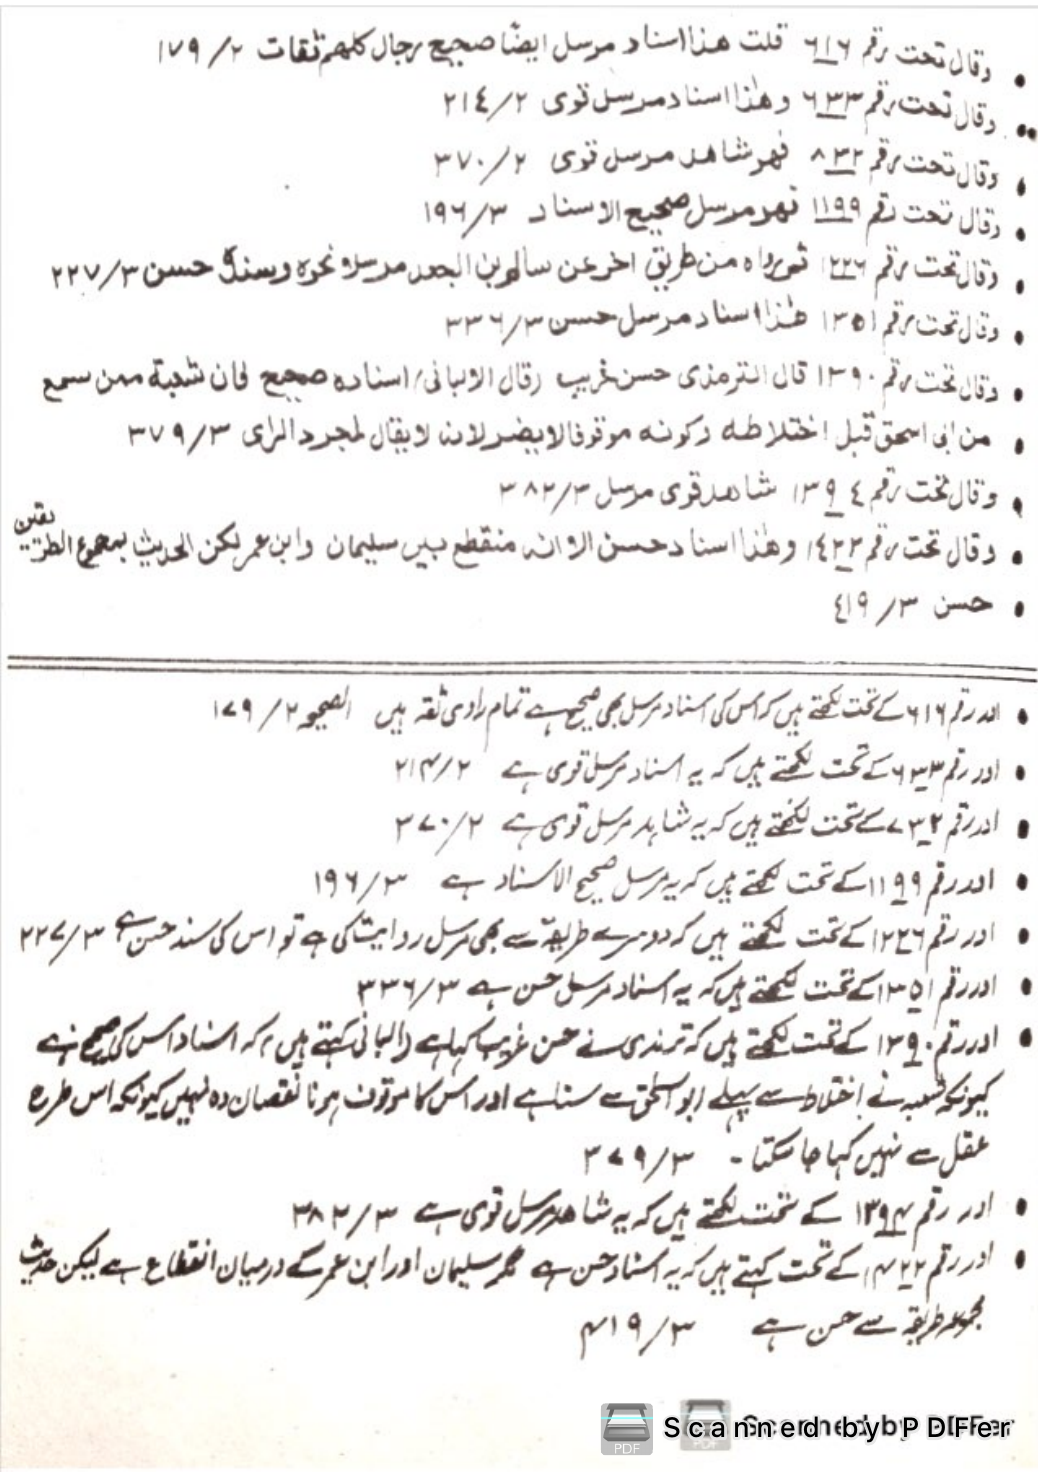 • وقال تحت رقم ٦١٦ قلت هذا اسناد مرسل ايضًا صحيح رجال كلهم ثقات ٢/ ١٧٩
• وقال تحت رقم ٦٣٣ وهٰذا اسناد مرسل قوى ٢/ ٢١٤
• وقال تحت رقم ٨٣٢ فهو شاهد مرسل قوى ٢/ ٣٧٠
• وقال تحت رقم ١١٩٩ فهو مرسل صحيح الاسناد ٣/ ١٩٦
• وقال تحت رقم ١٢٢٦ ثم رواه من طريق اخر عن سالم بن الجعد مرسلا ونحوه وسنده حسن ٣/ ٢٢٧
• وقال تحت رقم ١٣٥١ هٰذا اسناد مرسل حسن ٣/ ٣٣٦
• وقال تحت رقم ١٣٩٠ قال الترمذى حسن غريب وقال الالبانى/ اسناده صحيح فان شعبة ممن سمع
• من ابى اسحق قبل اختلاطه وكونه موقوفا لا يضر لانه لا يقال لمجرد الراى ٣/ ٣٧٩
• وقال تحت رقم ١٣٩٤ شاهد قوى مرسل ٣/ ٣٨٢
• وقال تحت رقم ١٤٢٢ وهٰذا اسناد حسن الا انه منقطع بين سليمان وابن عمر لكن الحديث بمجموع الطريقين
• حسن ٣/ ٤١٩
• اور رقم ٦١٦ کے تحت لکھتے ہیں کہ اس کی اسناد مرسل بھی صحیح ہے تمام راوی ثقہ ہیں الصحیحہ ٢/ ١٧٩
• اور رقم ٦٣٣ کے تحت لکھتے ہیں کہ یہ اسناد مرسل قوی ہے ٢/ ٢١۴
• اور رقم ٧٣٢ کے تحت لکھتے ہیں کہ یہ شاہد مرسل قوی ہے ٢/ ٣٧٠
• اور رقم ١١٩٩ کے تحت لکھتے ہیں کہ یہ مرسل صحیح الاسناد ہے ٣/ ١٩٦
• اور رقم ١٢٢٦ کے تحت لکھتے ہیں کہ دوسرے طریقہ سے بھی مرسل روایت کی ہے تو اس کی سند حسن ہے ٣/ ٢٢٧
• اور رقم ١٣٥١ کے تحت لکھتے ہیں کہ یہ اسناد مرسل حسن ہے ٣/ ٣٣٦
• اور رقم ١٣٩٠ کے تحت لکھتے ہیں کہ ترمذی نے حسن غریب کہا ہے (البانی کہتے ہیں) کہ اسناد اس کی صحیح ہے
کیونکہ شعبہ نے اختلاط سے پہلے ابو اسحٰق سے سنا ہے اور اس کا موقوف ہونا نقصان دہ نہیں کیونکہ اس طرح
عقل سے نہیں کہا جا سکتا - ٣/ ٣٧٩
• اور رقم ١٣٩۴ کے تحت لکھتے ہیں کہ یہ شاھد مرسل قوی ہے ٣/ ٣٨٢
• اور رقم ١۴٢٢ کے تحت کہتے ہیں کہ یہ اسناد حسن ہے مگر سلیمان اور ابن عمر کے درمیان انقطاع ہے لیکن حدیث
مجموعہ طریقہ سے حسن ہے ٣/ ۴١٩
Scanned by PDFFer
Scanned by PDFFer